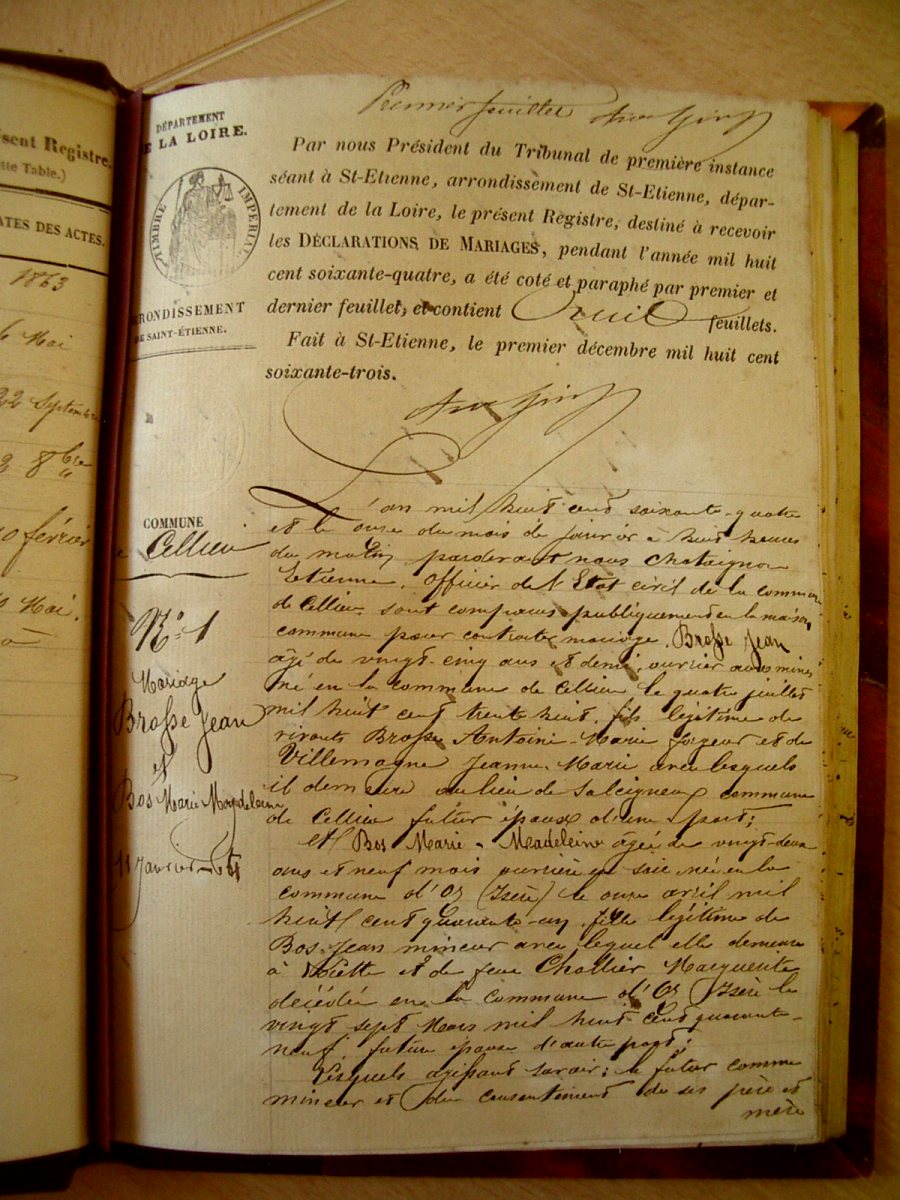 ésent Registre.
ette Table.)
ATES DES ACTES.
1863
6 Mai
22 Septembre
8bre
10 février
Mai
Premier feuillet
DÉPARTEMENT
E LA LOIRE.
TIMBRE IMPÉRIAL
RRONDISSEMENT
DE SAINT-ÉTIENNE.
Par nous Président du Tribunal de première instance
séant à St-Etienne, arrondissement de St-Etienne, dépar-
tement de la Loire, le présent Registre, destiné à recevoir
les DÉCLARATIONS DE MARIAGES, pendant l'année mil huit
cent soixante-quatre, a été coté et paraphé par premier et
dernier feuillet, et contient huit feuillets.
Fait à St-Etienne, le premier décembre mil huit cent
soixante-trois.
COMMUNE
de Cellieu
No. 1
Mariage
Brosse Jean
et
Bos Marie Magdeleine
11 Janvier 1864
L'an mil huit cent soixante-quatre
et le onze du mois de Janvier à huit heures
du matin, pardevant nous Chataignon
Etienne, Officier de l'Etat civil de la commune
de Cellieu, sont comparus publiquement en la maison
commune pour contracter mariage, Brosse Jean
âgé de vingt-cinq ans et demi, ouvrier aux mines
né en la commune de Cellieu le quatre juillet
mil huit cent trente huit, fils légitime de
vivants Brosse Antoine-Marie forgeur et de
Villemagne Jeanne Marie avec lesquels
il demeure au lieu de Salcigneux commune
de Cellieu futur époux d'une part;
et Bos Marie-Madeleine âgée de vingt-deux
ans et neuf mois ouvrière en soie, née en la
commune d'Oz (Isère) le onze avril mil
huit cent quarante-un, fille légitime de
Bos Jean mineur avec lequel elle demeure
à et de feue Challier Marguerite
décédée en la commune d'Oz Isère le
vingt sept Mars mil huit cent quarante-
neuf, future épouse d'autre part;
Lesquels agissant savoir: le futur comme
mineur et du consentement de ses père et
mère